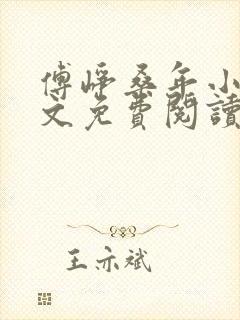 傅崢桑年小
文免費閱讀
王亦斌